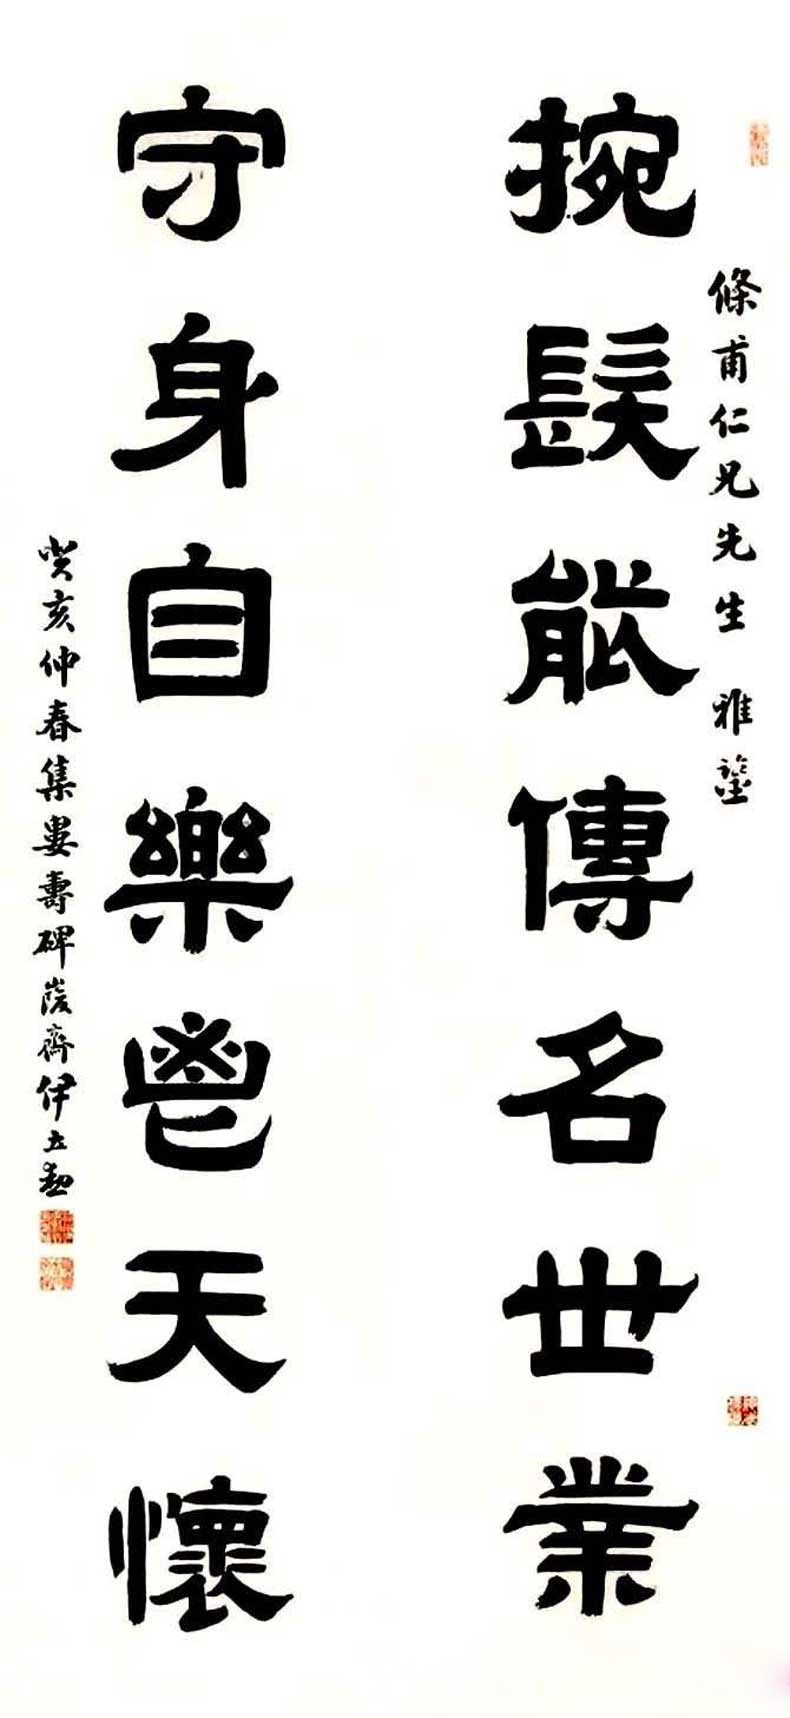 條甫仁兄先生 雅鑒
捥髮能傳名世業
守身自樂鬯天懷
癸亥仲春集婁壽碑峻齋伊立勳